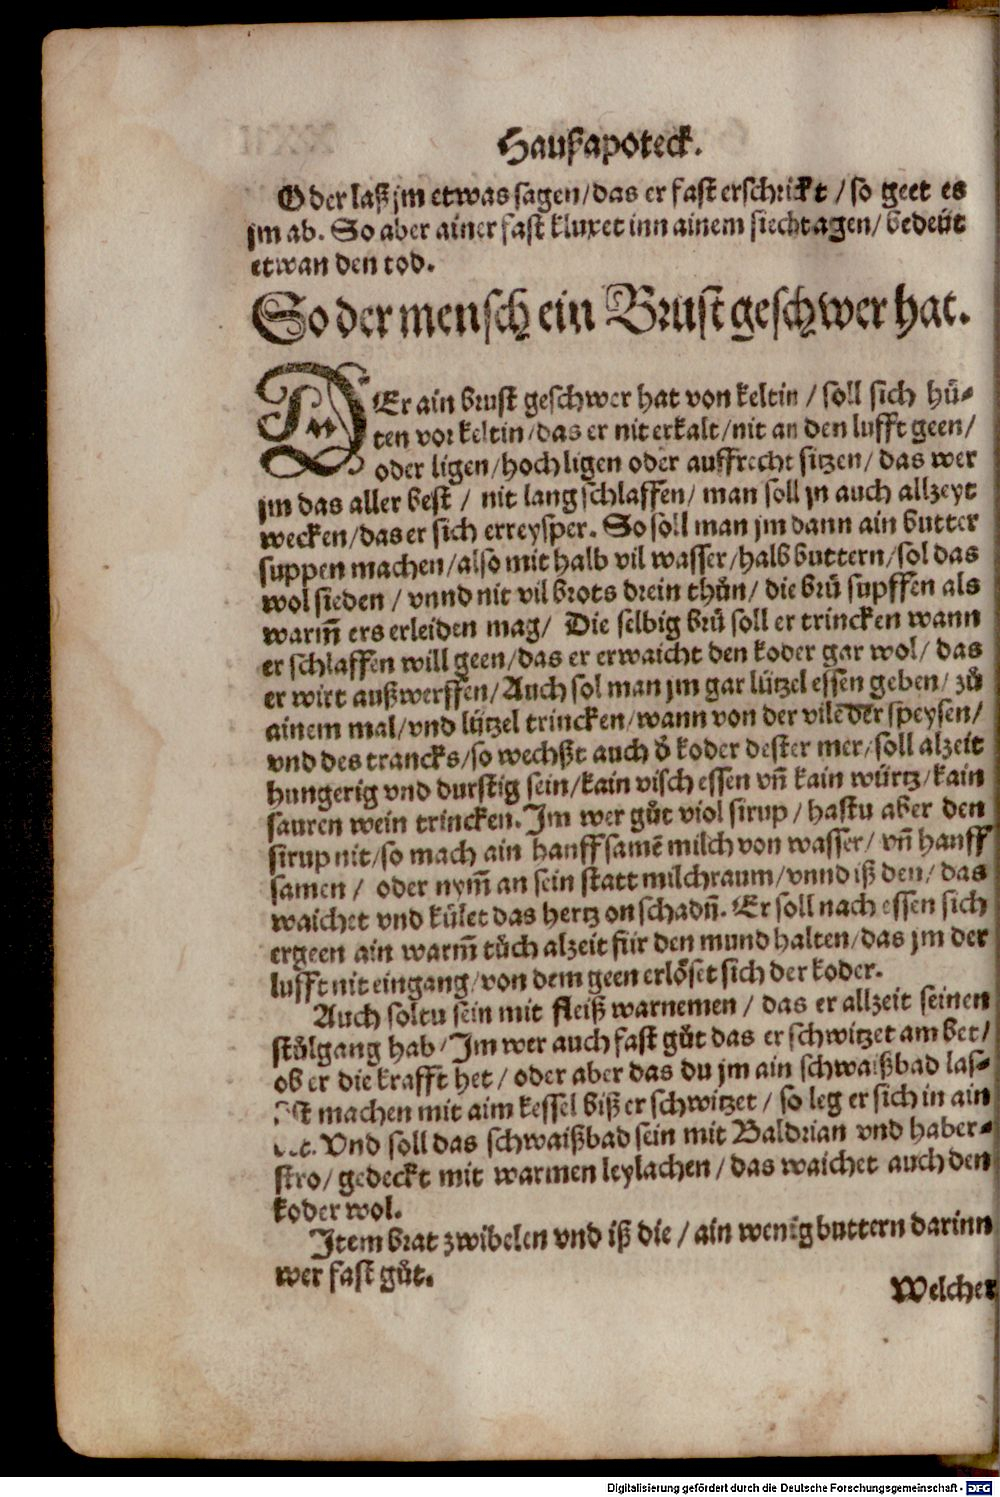 Haußapoteck.
Oder laß jm etwas sagen/das er fast erschrickt/so geet es
jm ab. So aber ainer fast kluxet inn ainem siechtagen/bedeüt
etwan den tod.
So der mensch ein Brust geschwer hat.
WEr ain brust geschwer hat von keltin/soll sich hü-
ten vor keltin/das er nit erkalt/nit an den lufft geen/
oder ligen/hoch ligen oder auffrecht sitzen/das wer
jm das aller best/ nit lang schlaffen/ man soll jn auch allzeyt
wecken/das er sich erreysper. So soll man jm dann ain butter
suppen machen/also mit halb vil wasser/halb buttern/sol das
wol sieden/vnnd nit vil brots drein thůn/die brü supffen als
warm̃ ers erleiden mag/ Die selbig brü soll er trincken wann
er schlaffen will geen/das er erwaicht den koder gar wol/das
er wirt außwerffen/Auch sol man jm gar lützel essen geben/zů
ainem mal/vnd lützel trincken/wann von der vile der speysen/
vnd des trancks/so wechßt auch d̕ koder dester mer/soll alzeit
hungerig vnd durstig sein/kain visch essen vñ kain würtz/kain
sauren wein trincken. Im wer gůt viol sirup/hastu aber den
sirup nit/so mach ain hanffsamẽ milch von wasser/vñ hanff
samen/ oder nym̃ an sein statt milchraum/vnnd iß den/das
waichet vnd kület das hertz on schadñ. Er soll nach essen sich
ergeen ain warm̃ tůch alzeit für den mund halten/das jm der
lufft nit eingang/von dem geen erlöset sich der koder.
Auch soltu sein mit fleiß warnemen/das er allzeit seinen
stůlgang hab/Im wer auch fast gůt das er schwitzet am bet/
ob er die krafft het/oder aber das du jm ain schwaißbad las-
sest machen mit aim kessel biß er schwitzet/so leg er sich in ain
bet. Vnd soll das schwaißbad sein mit Baldrian vnd haber-
stro/gedeckt mit warmen leylachen/das waichet auch den
koder wol.
Item brat zwibelen vnd iß die/ain wenig buttern darinn
wer fast gůt.
Welcher
Digitalisierung gefördert durch die Deutsche Forschungsgemeinschaft - DFG